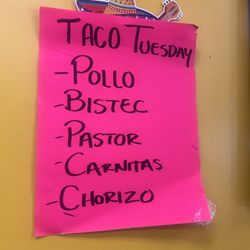 TACO TUESDAY
-POLLO
-BISTEC
-PASTOR
-CARNITAS
-CHORIZO